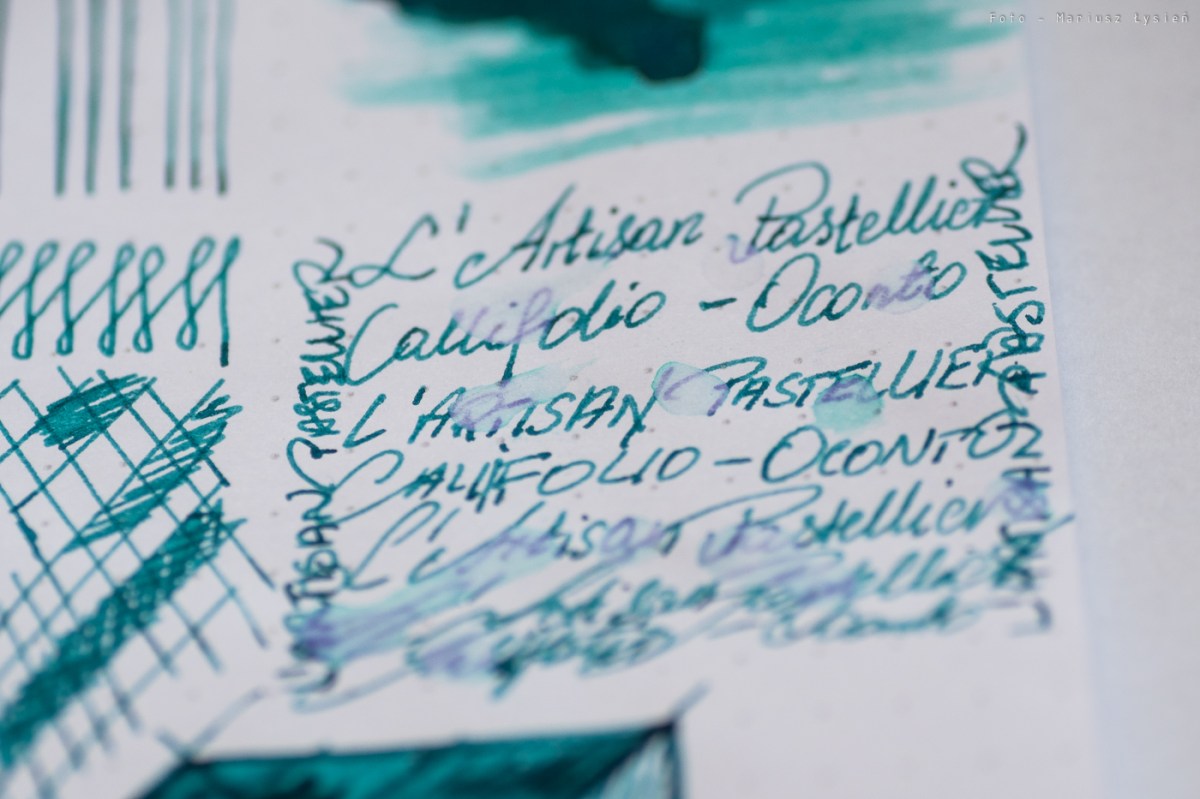 Foto - Mariusz Łysień
L'Artisan Pastellier
Callifolio - Oconto
L'ARTISAN PASTELLIER
CALLIFOLIO - OCONTO
L'Artisan Pastellier
Artisan Pastellier
L'ARTISAN PASTELLIER
L'ARTISAN PASTELLIER